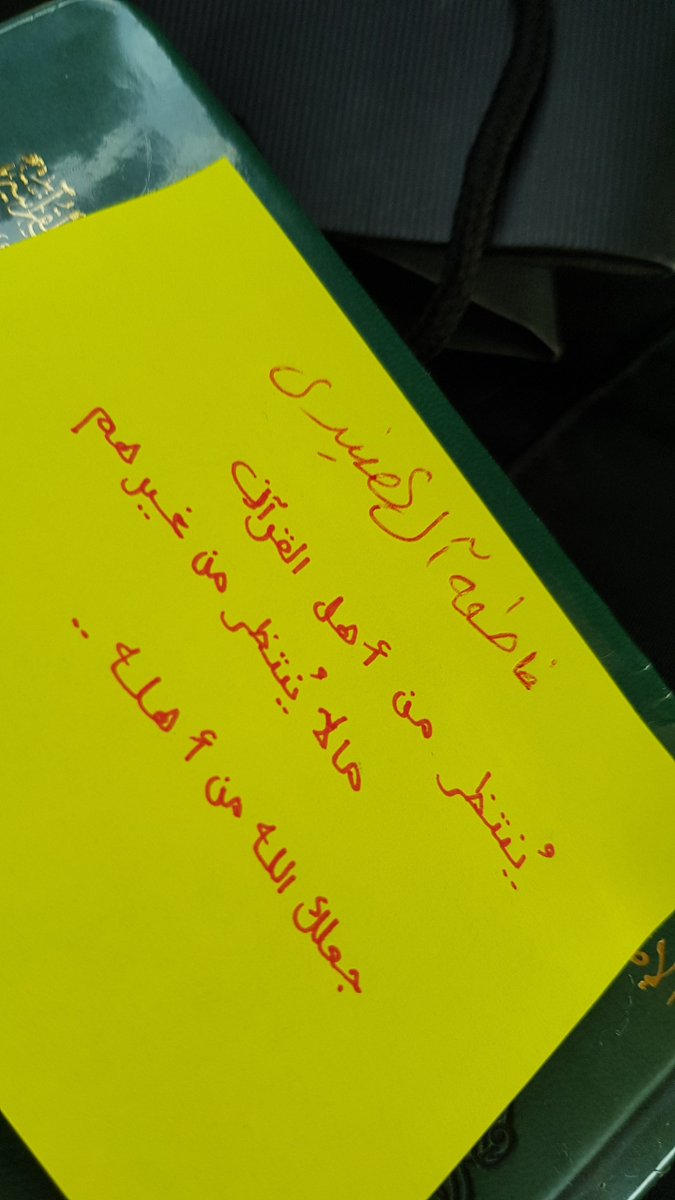 فاطمة آل
يُنتظر من أهل القرآن
مالا يُنتظر من غيرهم
جعلك الله من أهله ..